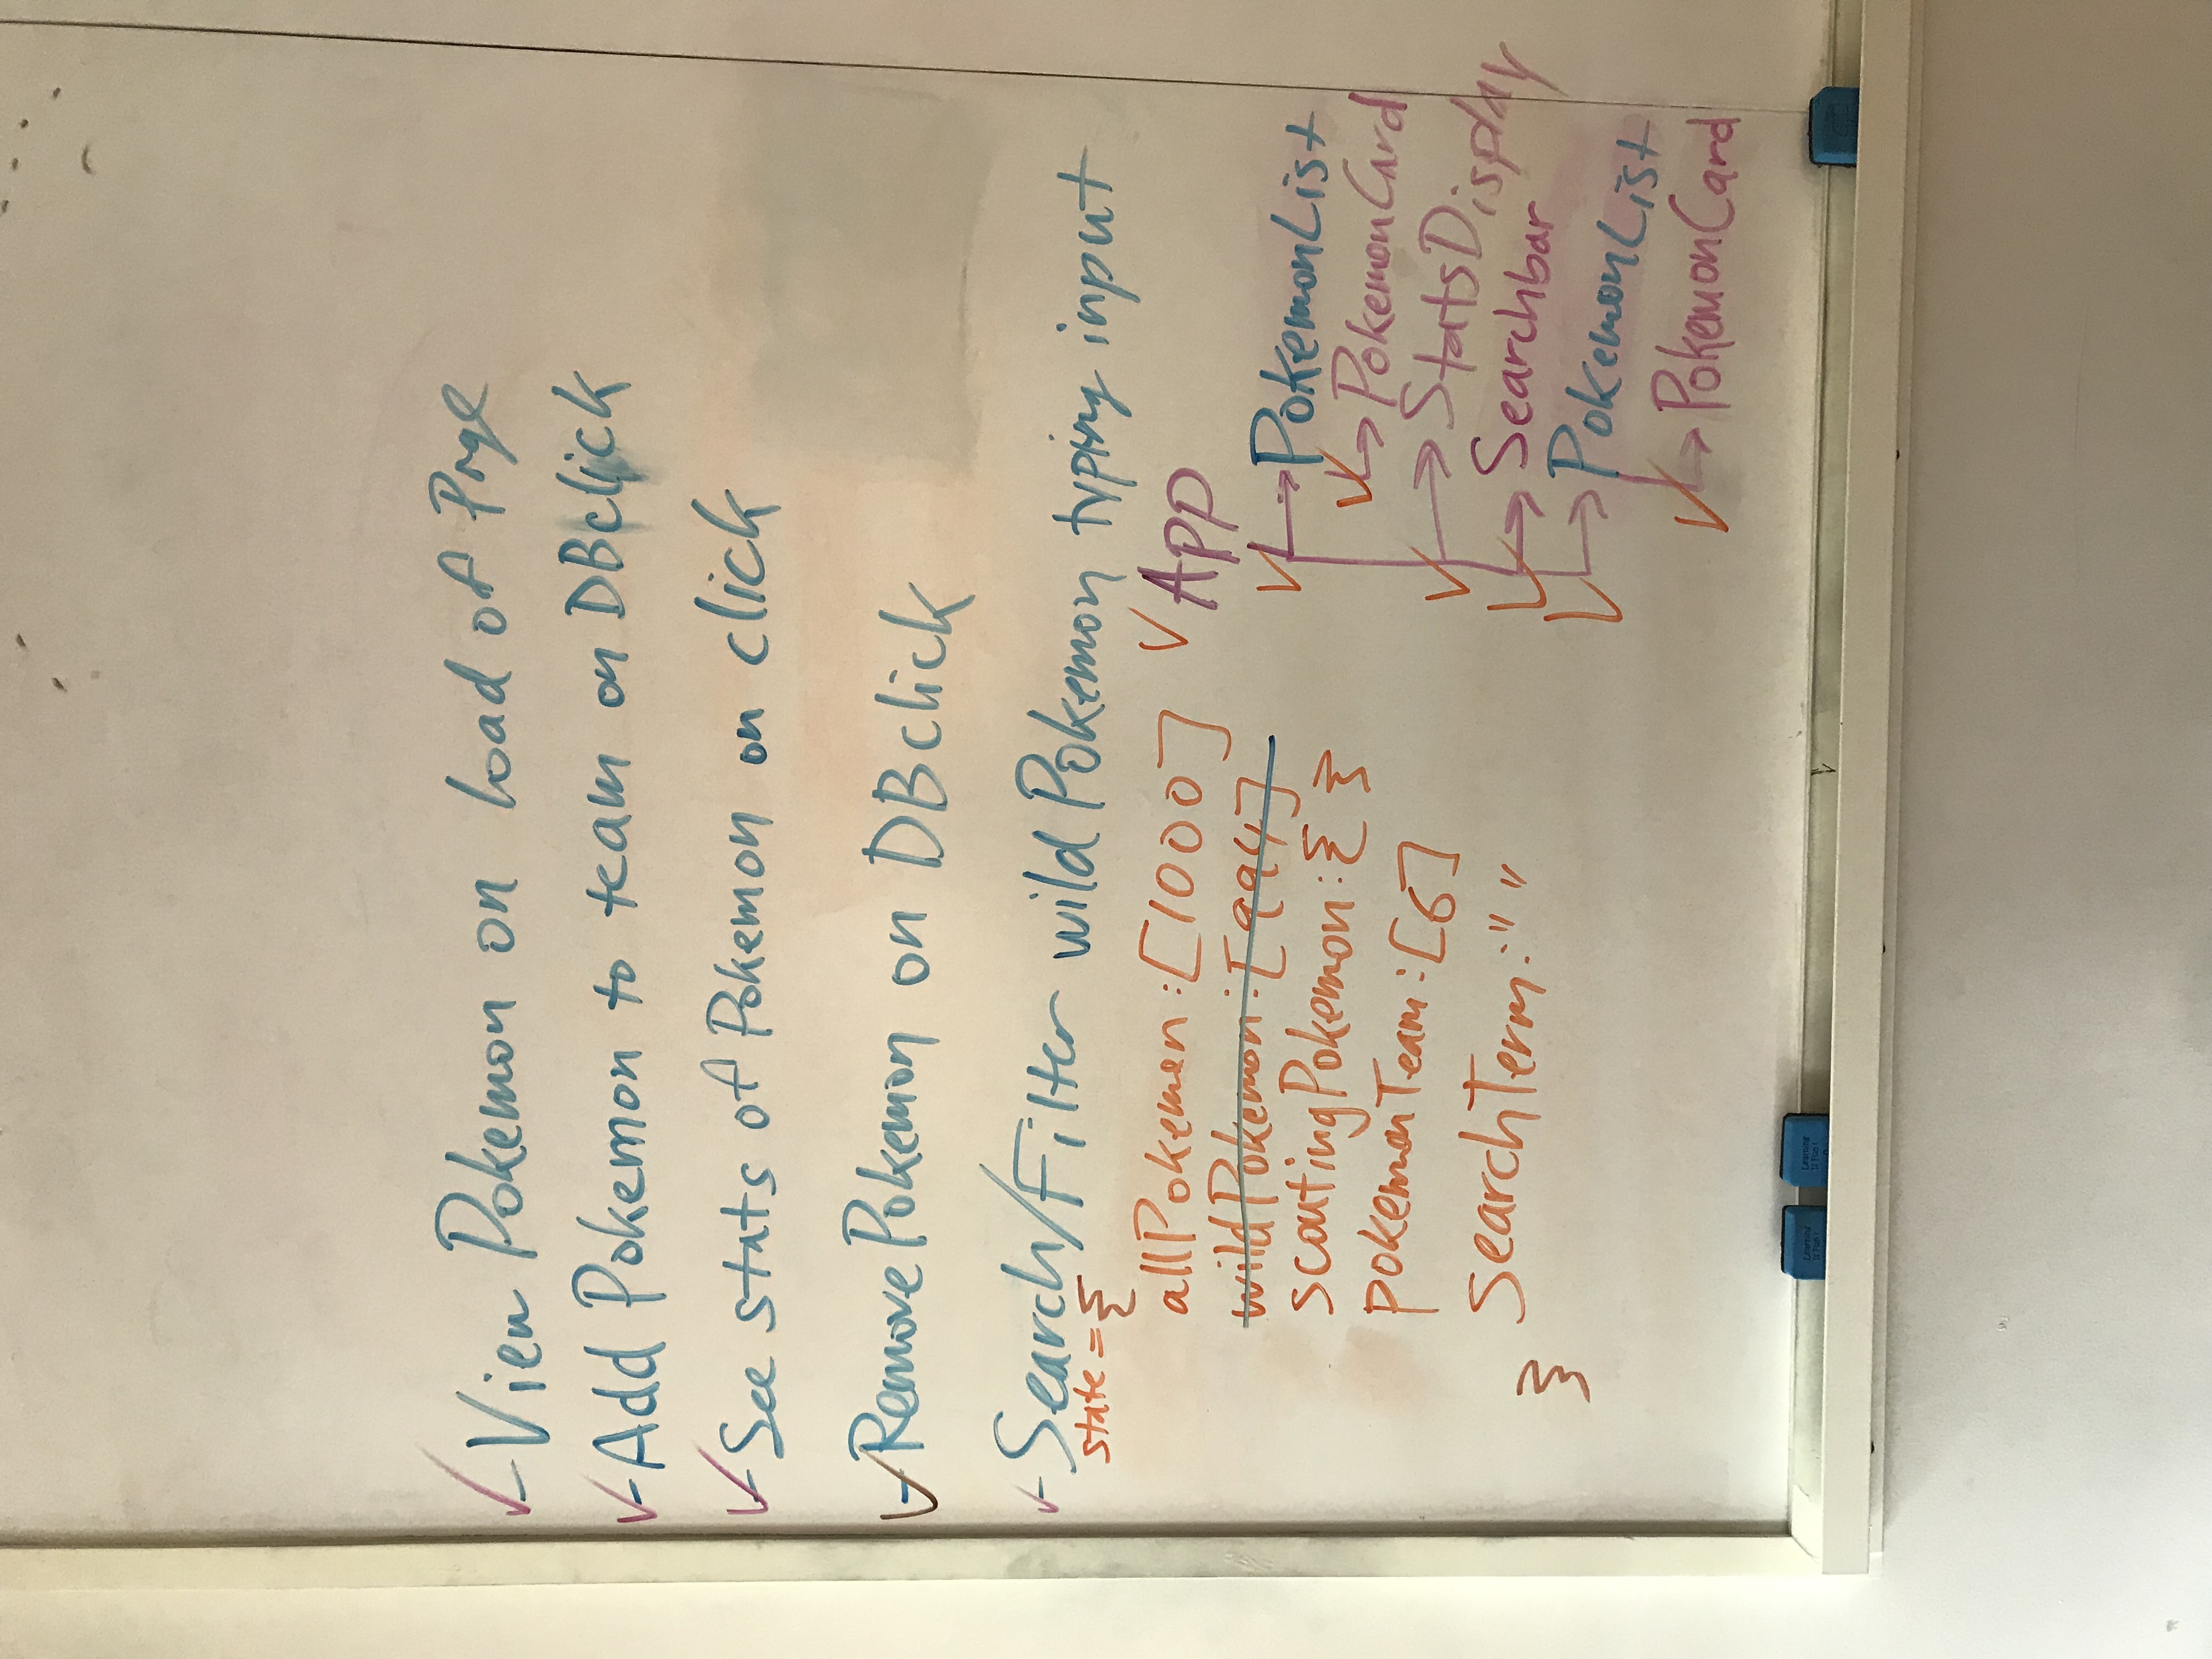 - View Pokemon on load of Page
- Add Pokemon to team on DBclick
- See stats of Pokemon on click
- Remove Pokemon on DBclick
- Search/Filter wild Pokemon typing input
state = {
allPokemon: [1000]
wildPokemon: [994]
scoutingPokemon: { }
pokemonTeam: [6]
searchTerm: " "
}
App
PokemonList
PokemonCard
StatsDisplay
Searchbar
PokemonList
PokemonCard
Learning
Is Fun!
Learning
Is Fun!